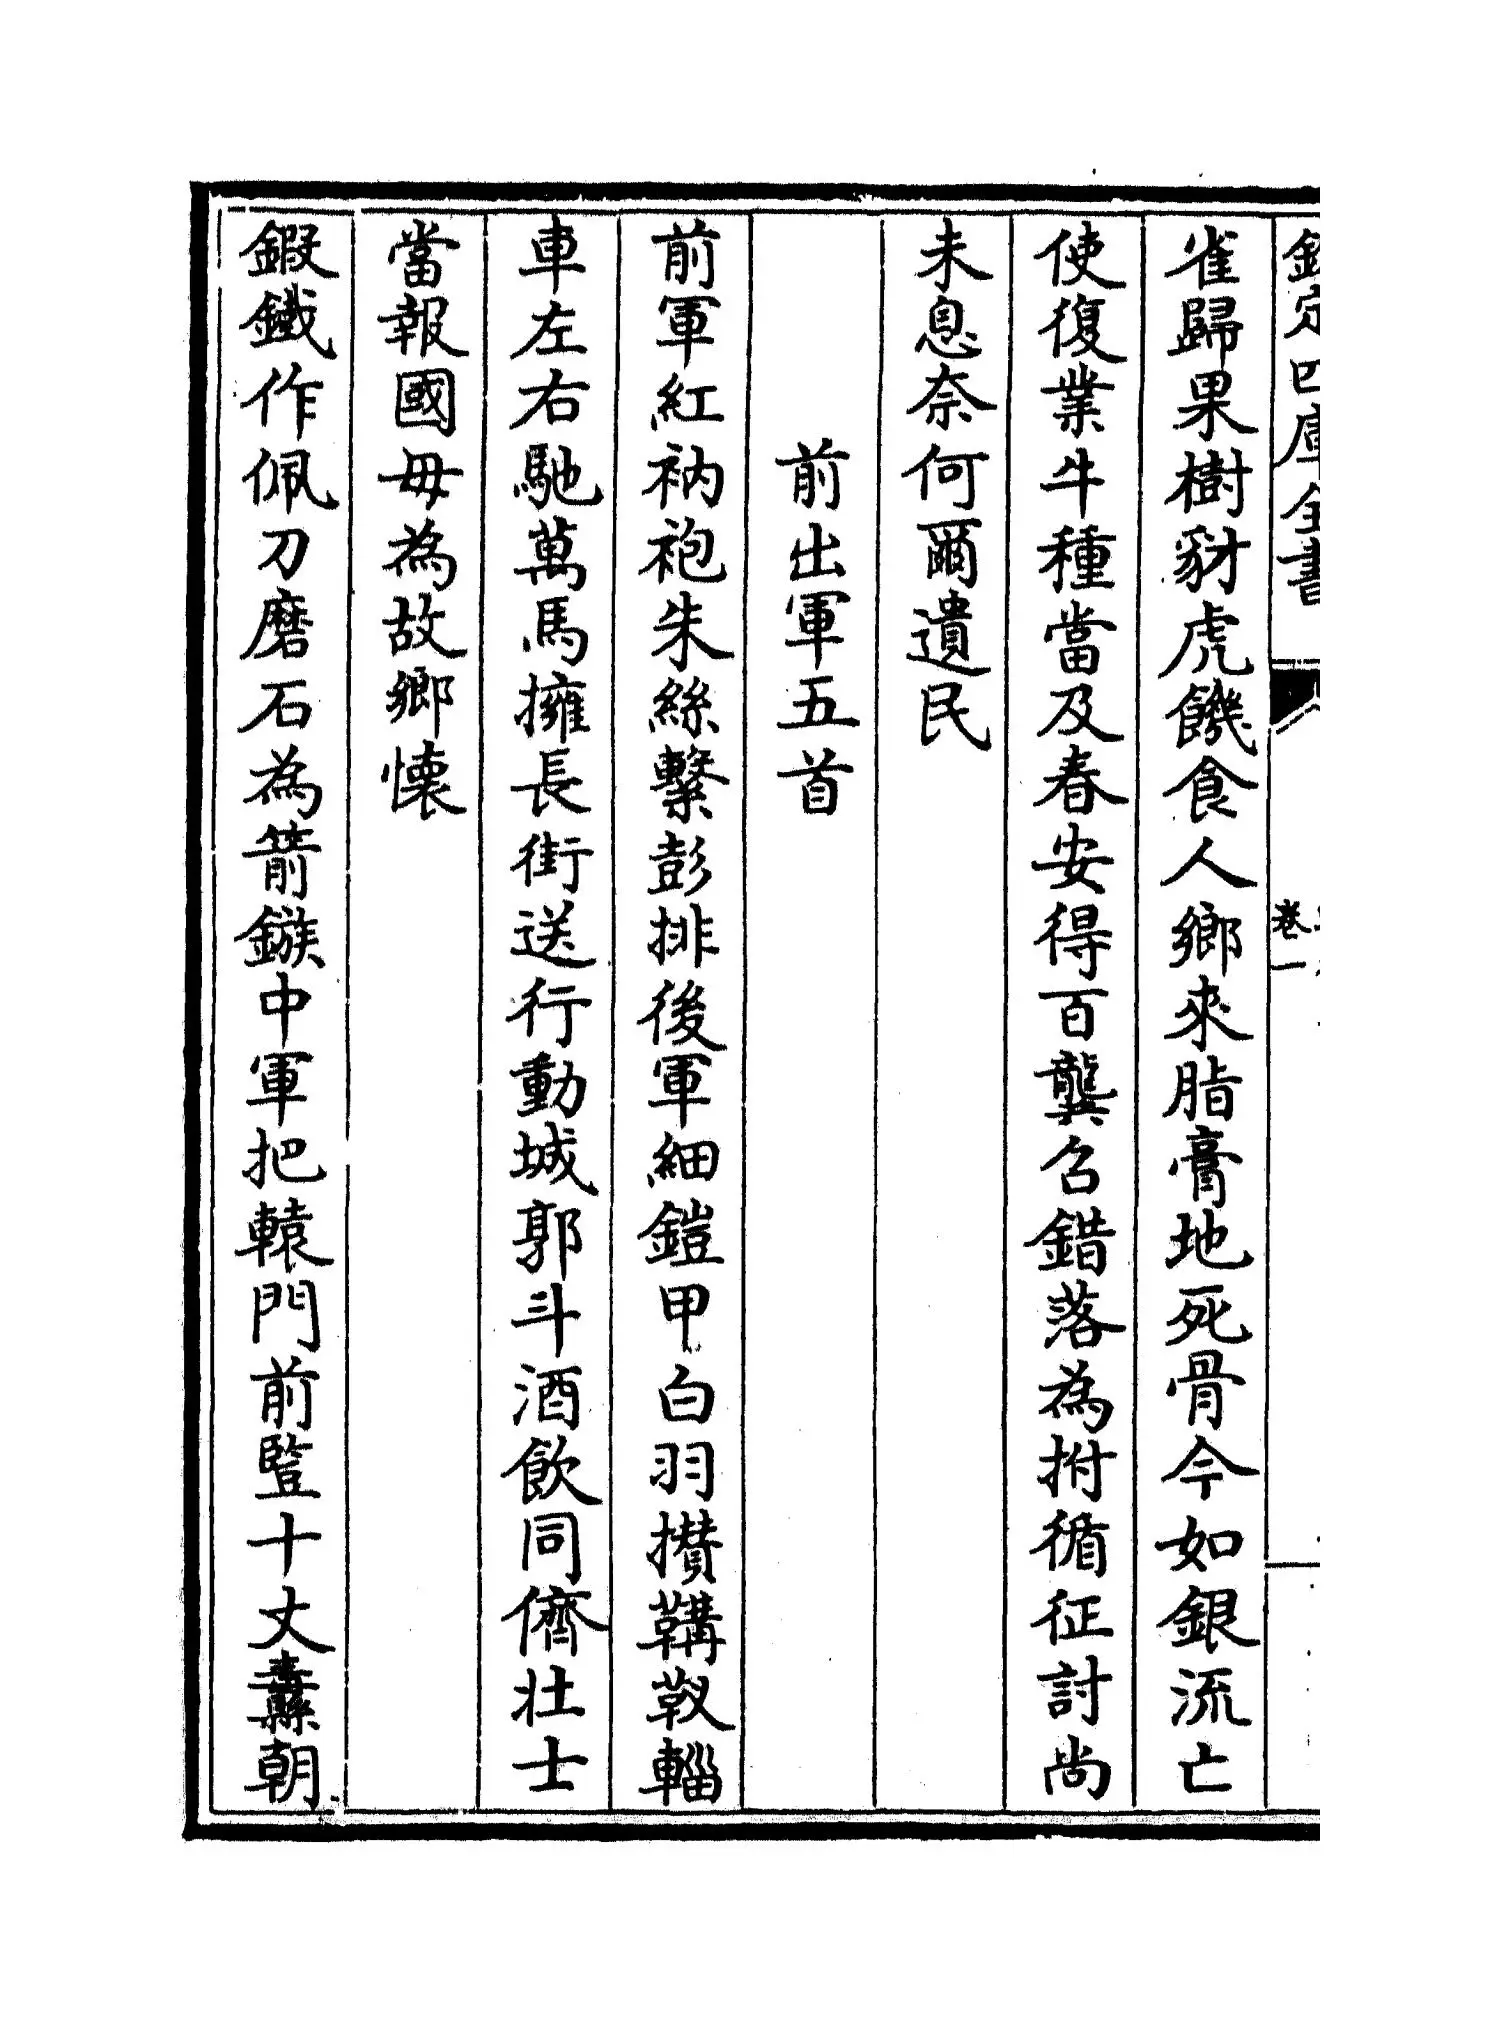 欽定四庫全書
卷一
雀歸果樹豺虎饑食人鄉來脂膏地死骨今如銀流亡
使復業牛種當及春安得百龔召錯落為拊循征討尚
未息奈何爾遺民
前出軍五首
前軍紅衲袍朱絲繫彭排後軍細鎧甲白羽攢鞲靫輜
車左右馳萬馬擁長街送行動城郭斗酒飲同儕壯士
當報國毋為故鄉懷
鍜鐵作佩刀磨石為箭鏃中軍把轅門前豎十丈纛朝